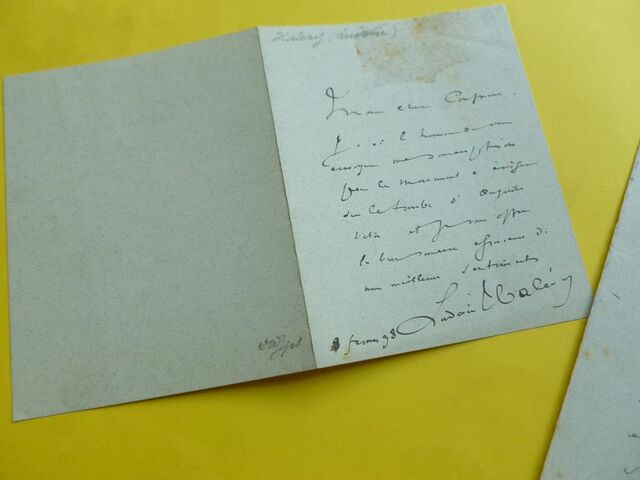 Halévy (Ludovic)
Mon cher Confrère,
J'ai l'honneur de vous
envoyer ma souscription
pour le monument à ériger
sur la tombe d'Auguste
Vitu et je vous offre
la bien sincère expression de
mes meilleurs sentiments
Ludovic Halévy
février 98